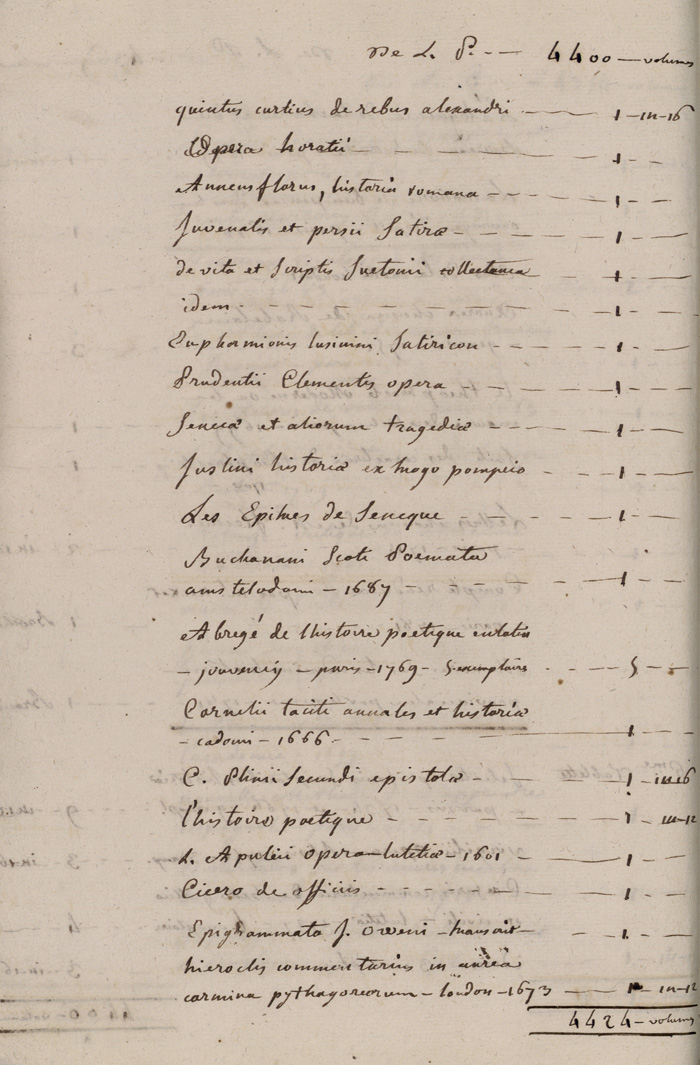 De L. P. — 4400 — volumes
quintus curtius de rebus alexandri — 1 — in-16
Opera horatii — 1
Anneus florus, historia romana — 1
Juvenalis et persii Satiræ — 1
de vita et Scriptis Suetonii collectanea — 1
idem — 1
Euphormionis lusinini Satiricon — 1
Prudentii Clementis opera — 1
Senecæ et aliorum tragediæ — 1
Justini historiæ ex trogo pompeio — 1
Les Epitres de Seneque — 1
Buchanani Scoti Poemata
amstelodami — 1687 — 1
Abregé de lhistoire poetique
— jouvency — paris — 1769 — 5 exemplaires — 5
Cornelii taciti annales et historiæ
— cadomi — 1666 — 1
C. Plinii Secundi epistolæ — 1 — in-16
l'histoire poetique — 1 — in-12
L. Apuleii opera — lutetiæ — 1601 — 1
Cicero de officiis — 1
Epigrammata J. Oweni — 1
hieroclis commentarius in aurea
carmina pythagoreorum — london — 1673 — 1 — in-12
4424 — volumes